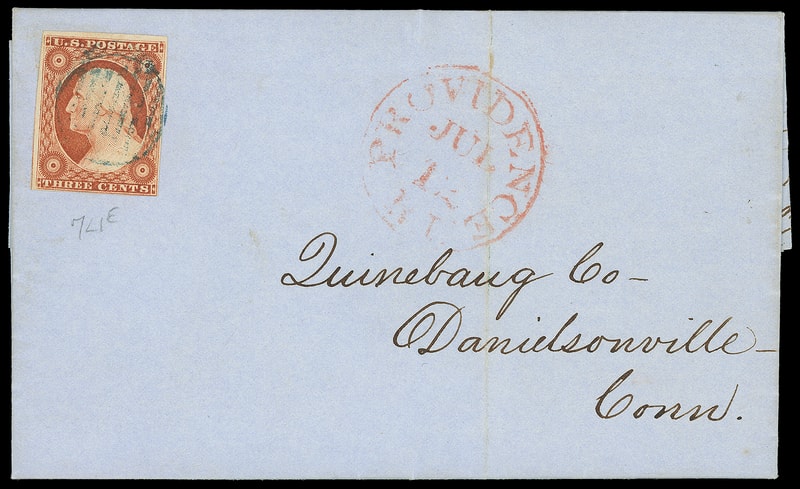 U.S. POSTAGE
THREE CENTS
PROVIDENCE R.I.
JUL
7L1E
Quinebaug Co-
Danielsonville-
Conn.